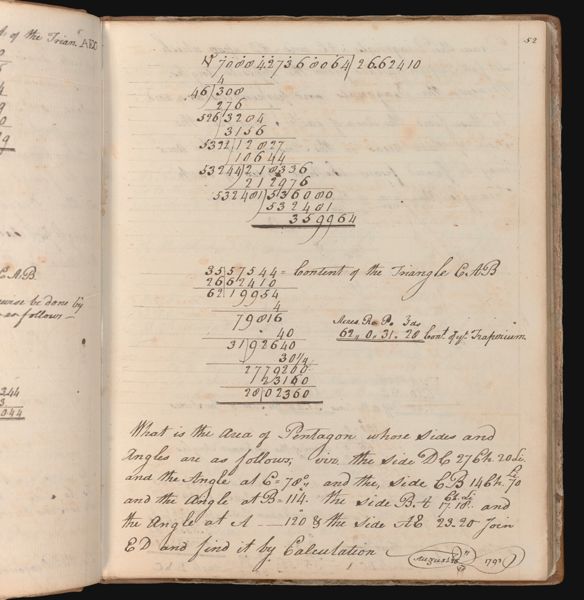 s. of the Trian. AEC
E.A.B.
wise be done by
as follows
344
3
044
52
√7008427368064|2662410
4
46|308
276
526|3284
3156
5322|12827
10644
53244|218336
212976
532481|536080
532481
359964
35|57544 = Content of the Triangle CAB
26|62410
62|19954
4
79816
40
31|92640
30¼
2779200
123160
28|02360
Acres. R. P. 3ds
62,, 0,, 31,, 28 Cont. of ye. Traperium
What is the Area of Pentagon whose Sides and
Angles are as follows, viz. the side DC 27 Ch. 20 Li.
and the Angle at C = 78°, and the, side CB 14 Ch. 70 Li
and the Angle at B = 114. the side BA Ch. Li. 17.18. and
the Angle at A 120 & the Side AE 23.20 Join
ED and find it by Calculation
August
179